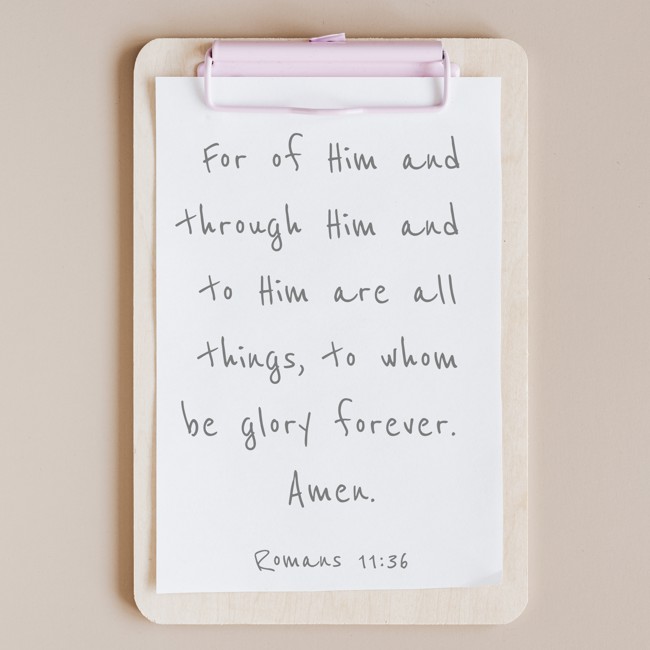 For of Him and
through Him and
to Him are all
things, to whom
be glory forever.
Amen.
Romans 11:36